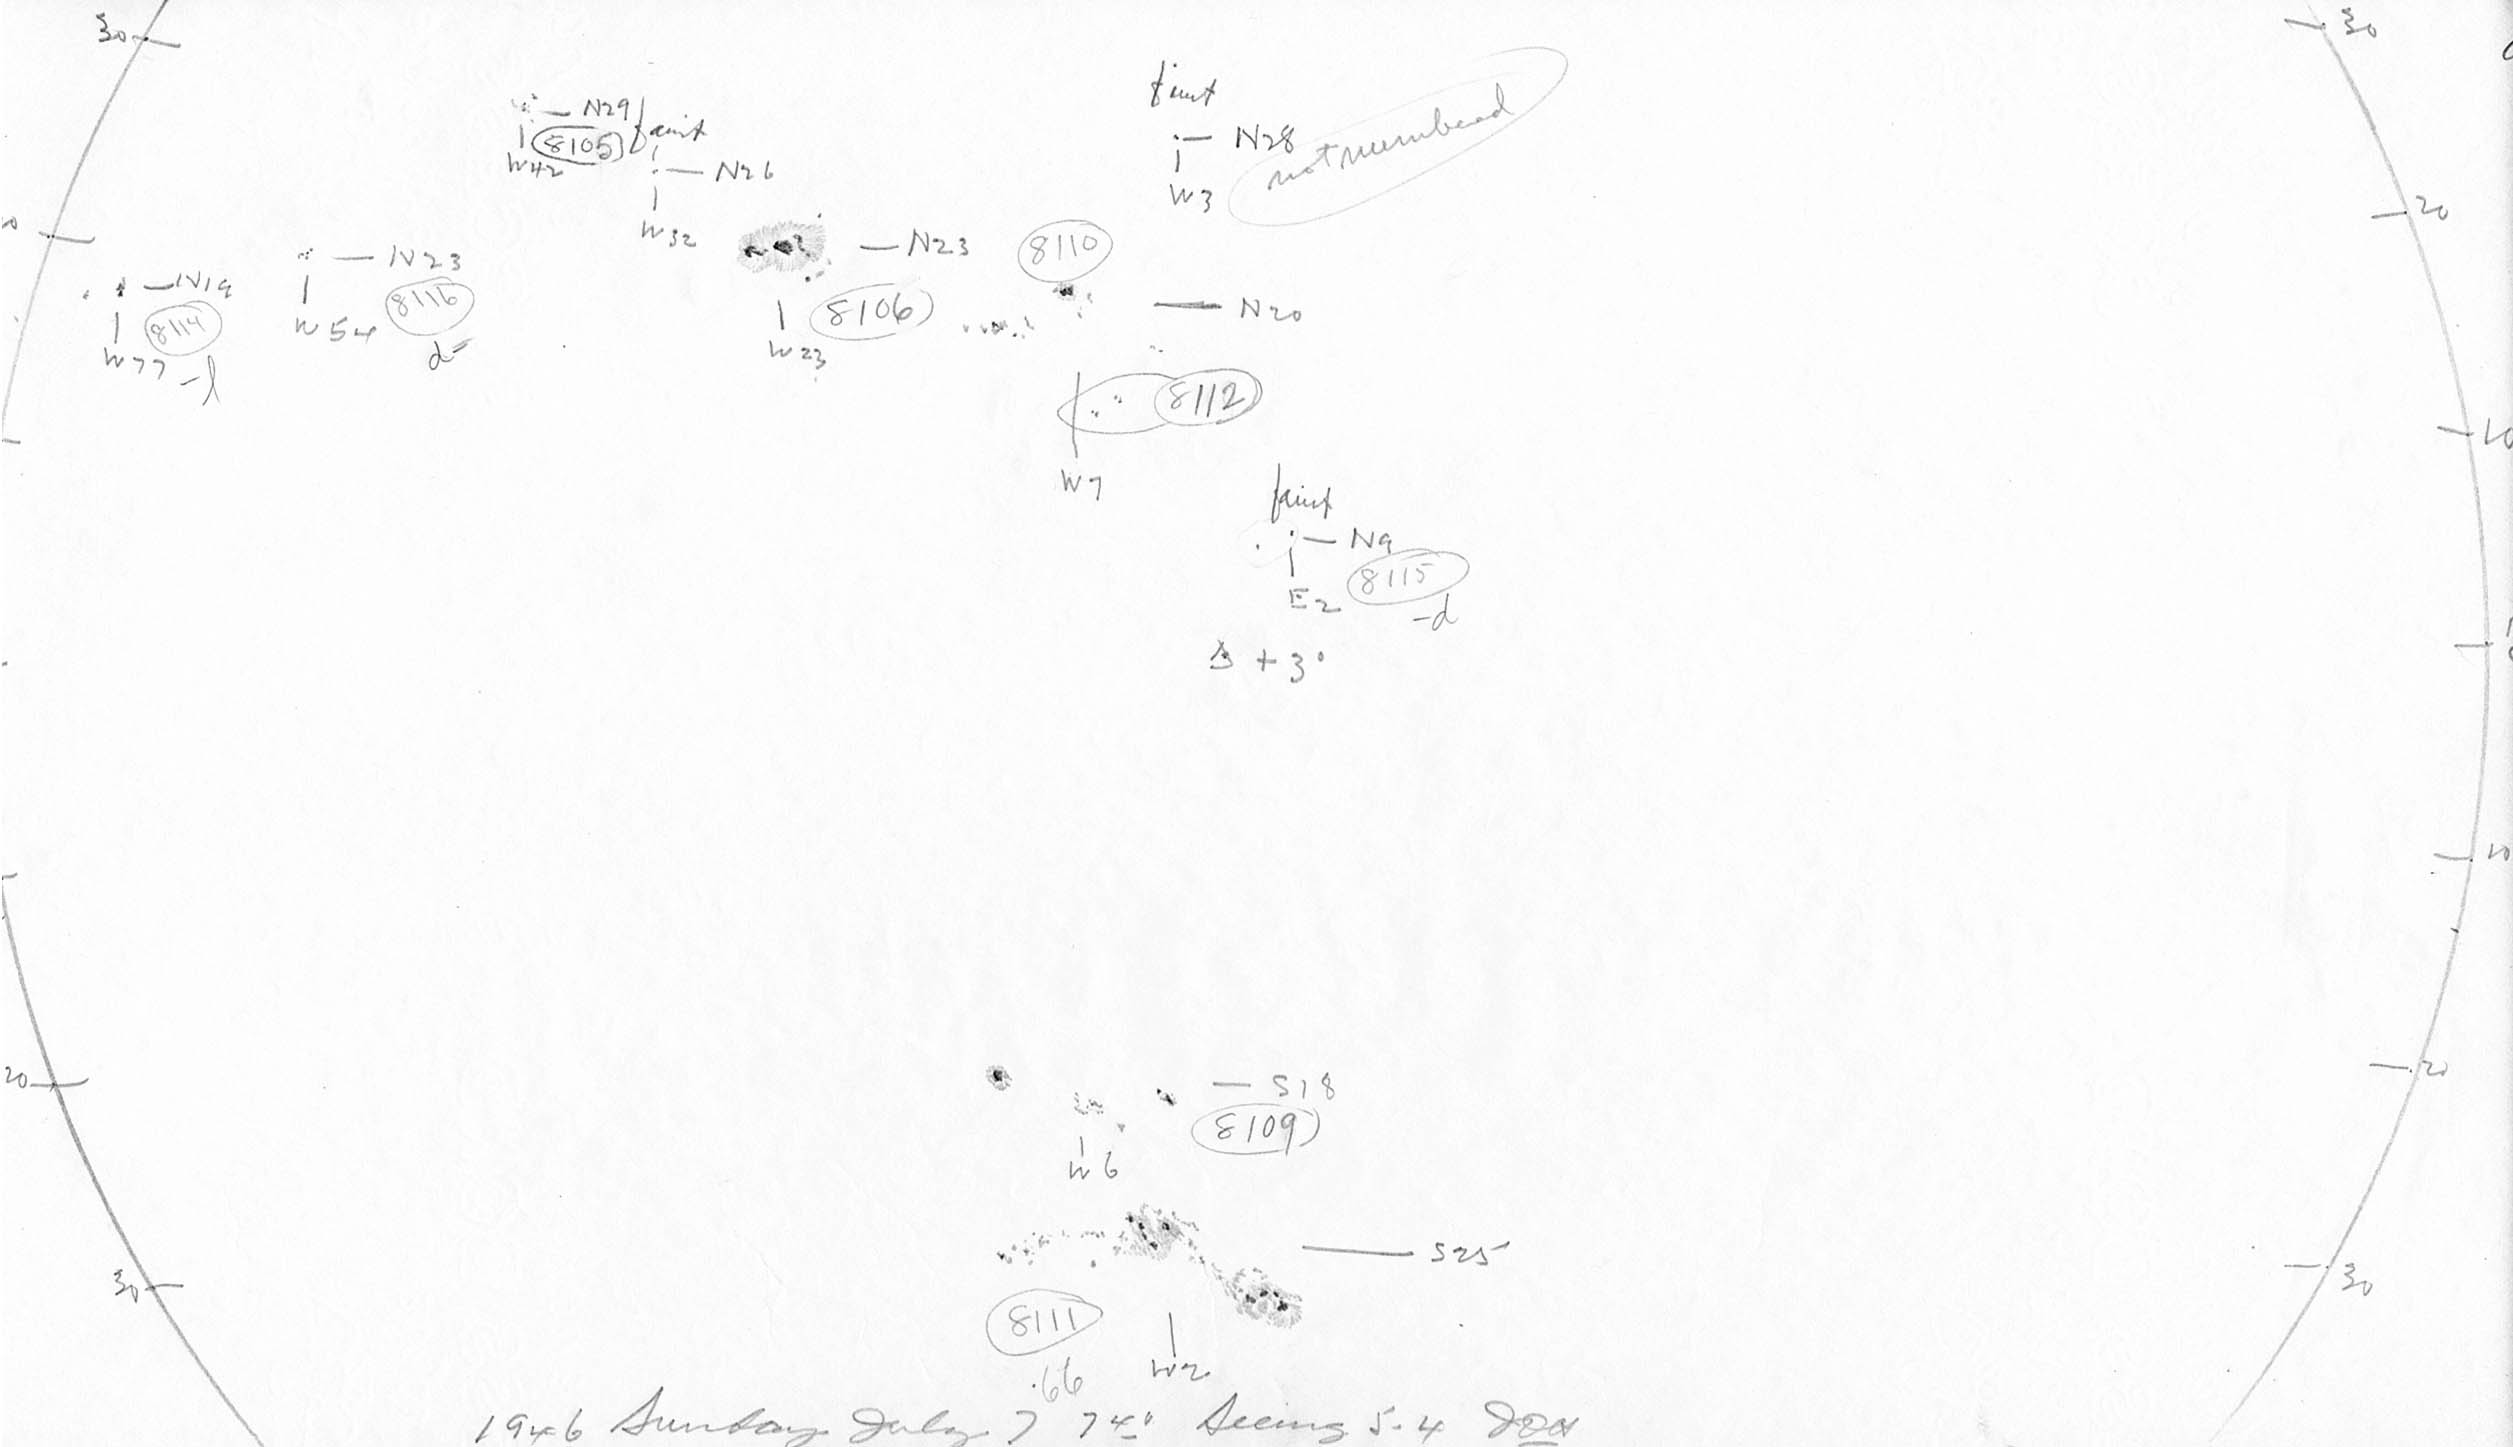 30
30
faint
N29
faint
8105
W42
N28
W3
not numbered
N26
W32
20
N23
N23
8110
N19
W77
8114
-l
W54
8116
d=
W23
8106
N20
8112
W7
10
faint
N9
E2
8115
-d
+ 3°
10
20
20
S18
8109
W6
S25
30
30
8111
W2
.66
1946 Sunday July 7 7 4 Seeing 5-4